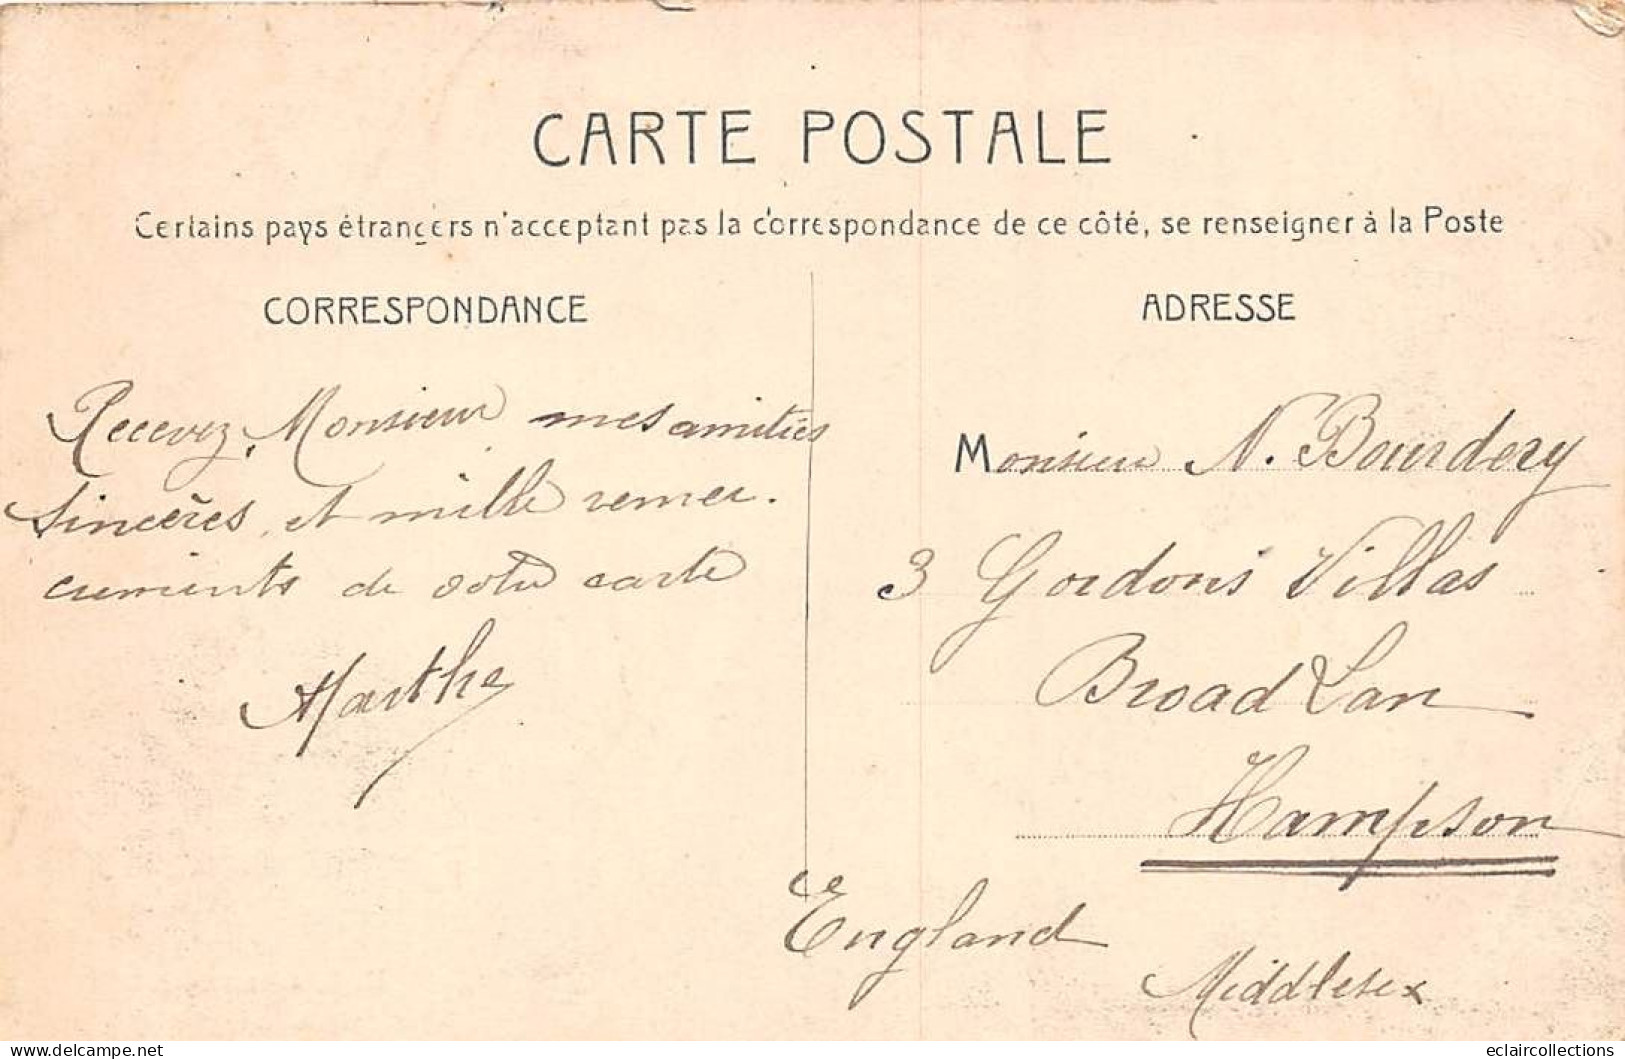 CARTE POSTALE
Certains pays étrangers n'acceptant pas la correspondance de ce côté, se renseigner à la Poste
CORRESPONDANCE
Recevez, Monsieur mes amitiés
sincères, et mille remer-
ciements de votre carte
Marthe
ADRESSE
Monsieur N. Bourdery
3 Gordon's Villas
Broad Lan
Hampson
England
Middlesex
www.delcampe.net
eclaircollections